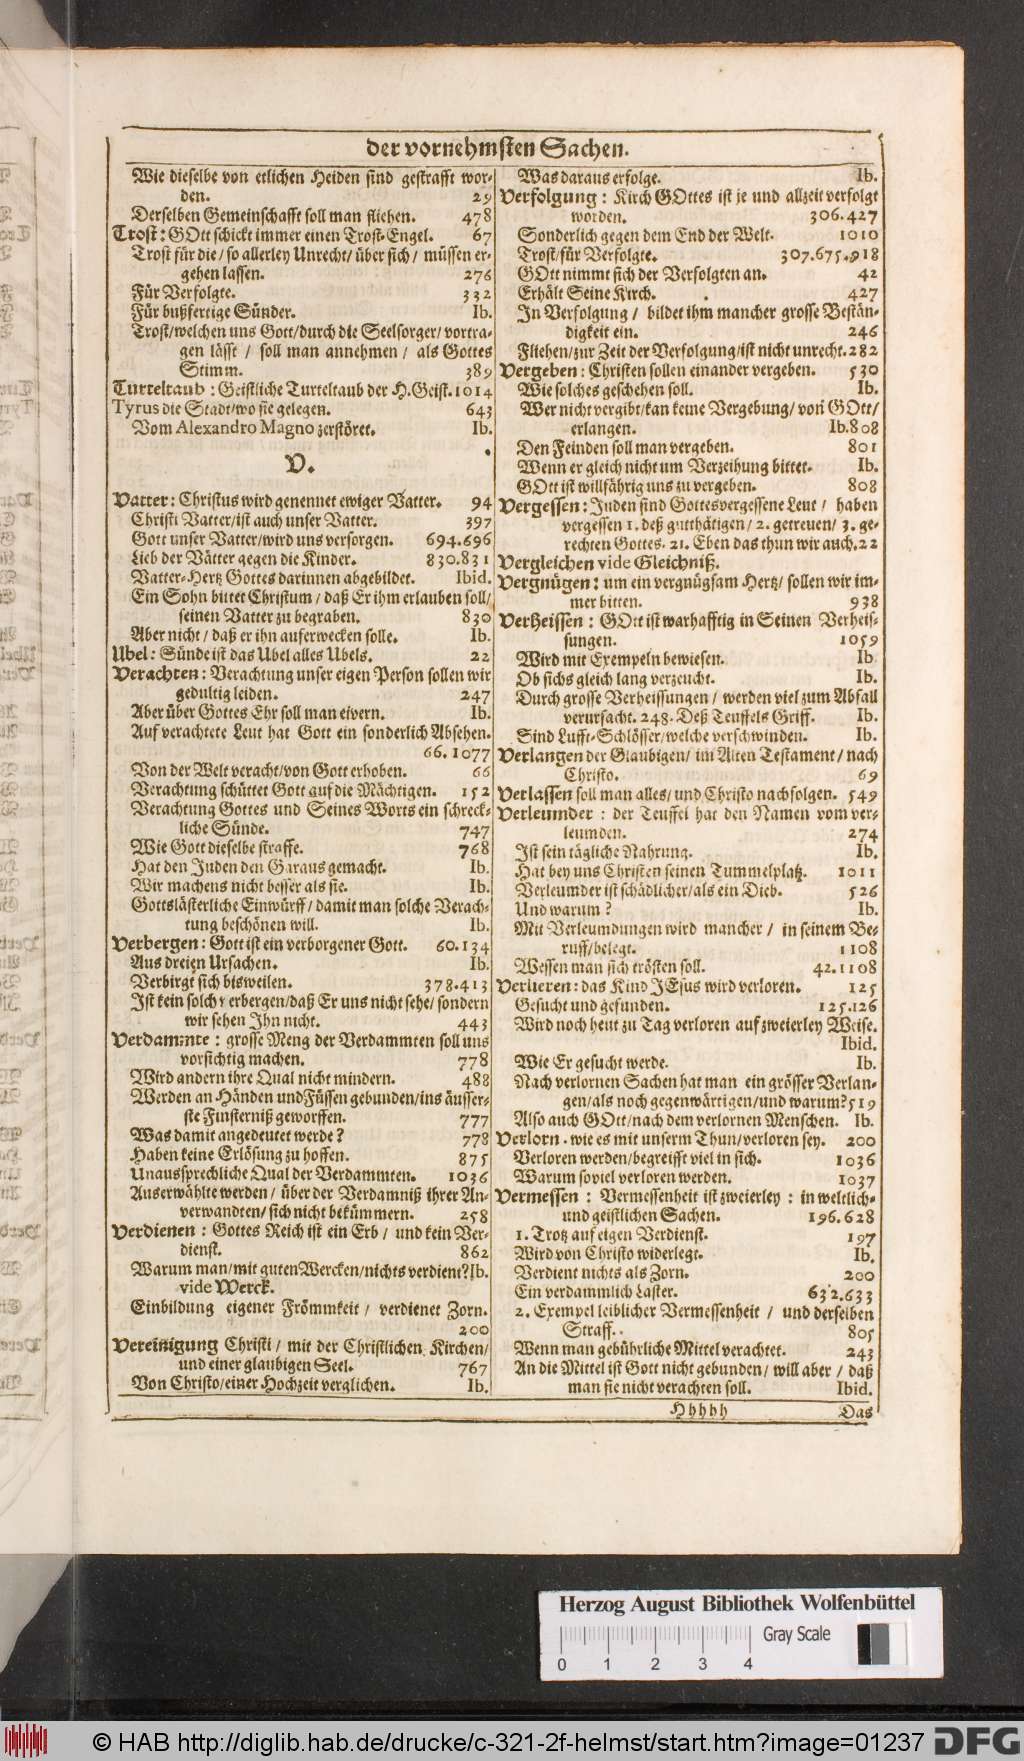 der vornehmsten Sachen.
Wie dieselbe von etlichen Heiden sind gestrafft wor-
den. 29
Derselben Gemeinschafft soll man fliehen. 478
Trost: GOtt schickt immer einen Trost-Engel. 67
Trost für die/ so allerley Unrecht/ über sich/ müssen er-
gehen lassen. 276
Für Verfolgte. 332
Für bußfertige Sünder. Ib.
Trost/welchen uns Gott/durch die Seelsorger/ vortra-
gen lässt / soll man annehmen / als Gottes
Stimm. 389
Turteltaub: Geistliche Turteltaub der H. Geist. 1014
Tyrus die Stadt/wo sie gelegen. 643
Vom Alexandro Magno zerstöret. Ib.
V.
Vatter: Christus wird genennet ewiger Vatter. 94
Christi Vatter/ist auch unser Vatter. 397
Gott unser Vatter/wird uns versorgen. 694.696
Lieb der Vätter gegen die Kinder. 830.831
Vatter-Hertz Gottes darinnen abgebildet. Ibid.
Ein Sohn bittet Christum / daß Er ihm erlauben soll/
seinen Vatter zu begraben. 830
Aber nicht / daß er ihn auferwecken solle. Ib.
Ubel: Sünde ist das Ubel alles Ubels. 22
Verachten: Verachtung unser eigen Person sollen wir
gedultig leiden. 247
Aber über Gottes Ehr soll man eivern. Ib.
Auf verachtete Leut hat Gott ein sonderlich Absehen.
66. 1077
Von der Welt veracht/von Gott erhoben. 66
Verachtung schüttet Gott auf die Mächtigen. 152
Verachtung Gottes und Seines Worts ein schreck-
liche Sünde. 747
Wie Gott dieselbe straffe. 768
Hat den Juden den Garaus gemacht. Ib.
Wir machens nicht besser als sie. Ib.
Gottslästerliche Einwürff/ damit man solche Verach-
tung beschönen will. Ib.
Verbergen: Gott ist ein verborgener Gott. 60.134
Aus dreien Ursachen. Ib.
Verbirgt sich bisweilen. 378.413
Ist kein solch erbergen/daß Er uns nicht sehe/ sondern
wir sehen Ihn nicht. 443
Verdammte: grosse Meng der Verdammten soll uns
vorsichtig machen. 778
Wird andern ihre Qual nicht mindern. 488
Werden an Händen und Füssen gebunden/ins äusser-
ste Finsterniß geworffen. 777
Was damit angedeutet werde? 778
Haben keine Erlösung zu hoffen. 875
Unaussprechliche Qual der Verdammten. 1036
Auserwählte werden / über der Verdamniß ihrer An-
verwandten/ sich nicht bekümmern. 258
Verdienen: Gottes Reich ist ein Erb / und kein Ver-
dienst. 862
Warum man/mit guten Wercken/nichts verdient? Ib.
vide Werck.
Einbildung eigener Frömmkeit / verdienet Zorn.
200
Vereinigung Christi / mit der Christlichen Kirchen/
und einer glaubigen Seel. 767
Von Christo/einer Hochzeit verglichen. Ib.
Was daraus erfolge. Ib.
Verfolgung: Kirch GOttes ist je und allzeit verfolgt
worden. 306.427
Sonderlich gegen dem End der Welt. 1010
Trost/für Verfolgte. 307.675.918
GOtt nimmt sich der Verfolgten an. 42
Erhält Seine Kirch. 427
In Verfolgung / bildet ihm mancher grosse Bestän-
digkeit ein. 246
Fliehen/zur Zeit der Verfolgung/ist nicht unrecht. 282
Vergeben: Christen sollen einander vergeben. 530
Wie solches geschehen soll. Ib.
Wer nicht vergibt/kan keine Vergebung/ von GOtt/
erlangen. Ib.808
Den Feinden soll man vergeben. 801
Wenn er gleich nicht um Verzeihung bittet. Ib.
GOtt ist willfährig uns zu vergeben. 808
Vergessen: Juden sind Gottesvergessene Leut / haben
vergessen 1. deß gutthätigen/ 2. getreuen/ 3. ge-
rechten Gottes. 21. Eben das thun wir auch. 22
Vergleichen vide Gleichniß.
Vergnügen: um ein vergnügsam Hertz/ sollen wir im-
mer bitten. 938
Verheissen: GOtt ist warhafftig in Seinen Verheis-
sungen. 1059
Wird mit Exempeln bewiesen. Ib
Ob sichs gleich lang verzeucht. Ib.
Durch grosse Verheissungen / werden viel zum Abfall
verursacht. 248. Deß Teuffels Griff. Ib.
Sind Lufft-Schlösser/welche verschwinden. Ib.
Verlangen der Glaubigen/ im Alten Testament / nach
Christo. 69
Verlassen soll man alles/ und Christo nachfolgen. 549
Verleumder: der Teuffel hat den Namen vom ver-
leumden. 274
Ist sein tägliche Nahrung. Ib.
Hat bey uns Christen seinen Tummelplatz. 1011
Verleumder ist schädlicher/als ein Dieb. 526
Und warum? Ib.
Mit Verleumdungen wird mancher / in seinem Be-
ruff/belegt. 1108
Wessen man sich trösten soll. 42.1108
Verlieren: das Kind JEsus wird verloren. 125
Gesucht und gefunden. 125.126
Wird noch heut zu Tag verloren auf zweierley Weise.
Ibid.
Wie Er gesucht werde. Ib.
Nach verlornen Sachen hat man ein grösser Verlan-
gen/als noch gegenwärtigen/und warum? 519
Also auch GOtt/nach dem verlornen Menschen. Ib.
Verlorn. wie es mit unserm Thun/verloren sey. 200
Verloren werden/begreifft viel in sich. 1036
Warum soviel verloren werden. 1037
Vermessen: Vermessenheit ist zweierley: in weltlich-
und geistlichen Sachen. 196.628
1. Trotz auf eigen Verdienst. 197
Wird von Christo widerlegt. Ib.
Verdient nichts als Zorn. 200
Ein verdammlich Laster. 632.633
2. Exempel leiblicher Vermessenheit / und derselben
Straff. 805
Wenn man gebührliche Mittel verachtet. 243
An die Mittel ist Gott nicht gebunden/ will aber / daß
man sie nicht verachten soll. Ibid.
Hhhhh Das
Herzog August Bibliothek Wolfenbüttel
Gray Scale
0 1 2 3 4
© HAB http://diglib.hab.de/drucke/c-321-2f-helmst/start.htm?image=01237 DFG